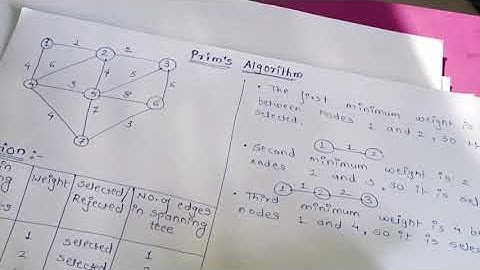 Prim's Algorithm
1 1 2 2 3
4 6 4 5 6
4 3 5 8 6
4 7 3
7
• The first minimum weight is
between nodes 1 and 2, so it
selected.
1 2
• Second minimum weight is 2
nodes 2 and 3, so it is selec
1 1 2 2 3
• Third minimum weight is 4 b
nodes 1 and 4, so it is selec
tion :-
in
Weight
Selected/
Rejected
No. of edges
in spanning
tree
1 selected 1
2 selected